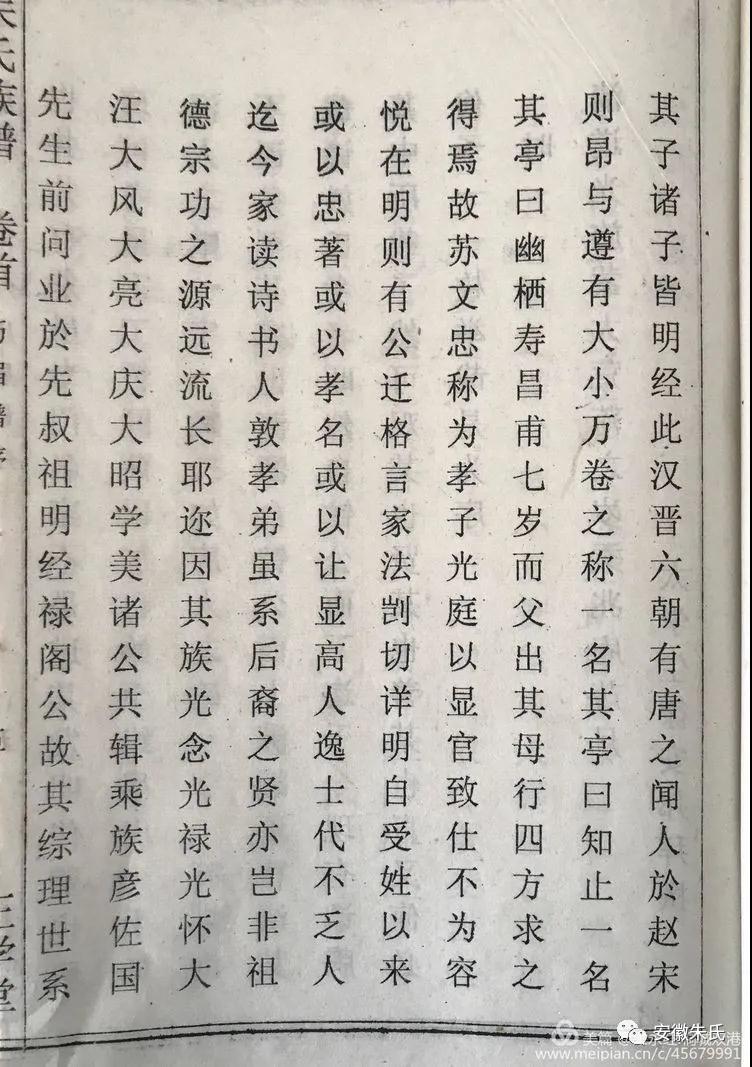 其子诸子皆明经此汉晋六朝有唐之闻人於赵宋
则昂与遵有大小万卷之称一名其亭曰知止一名
其亭曰幽栖寿昌甫七岁而父出其母行四方求之
得焉故苏文忠称为孝子光庭以显官致仕不为容
悦在明则有公迁格言家法剀切详明自受姓以来
或以忠著或以孝名或以让显高人逸士代不乏人
迄今家读诗书人敦孝弟虽系后裔之贤亦岂非祖
德宗功之源远流长耶迩因其族光念光禄光怀大
汪大风大亮大庆大昭学美诸公共辑乘族彦佐国
先生前问业於先叔祖明经禄阁公故其综理世系
氏族谱 卷首
美篇
安徽朱氏
www.meipian.cn/c/45679991